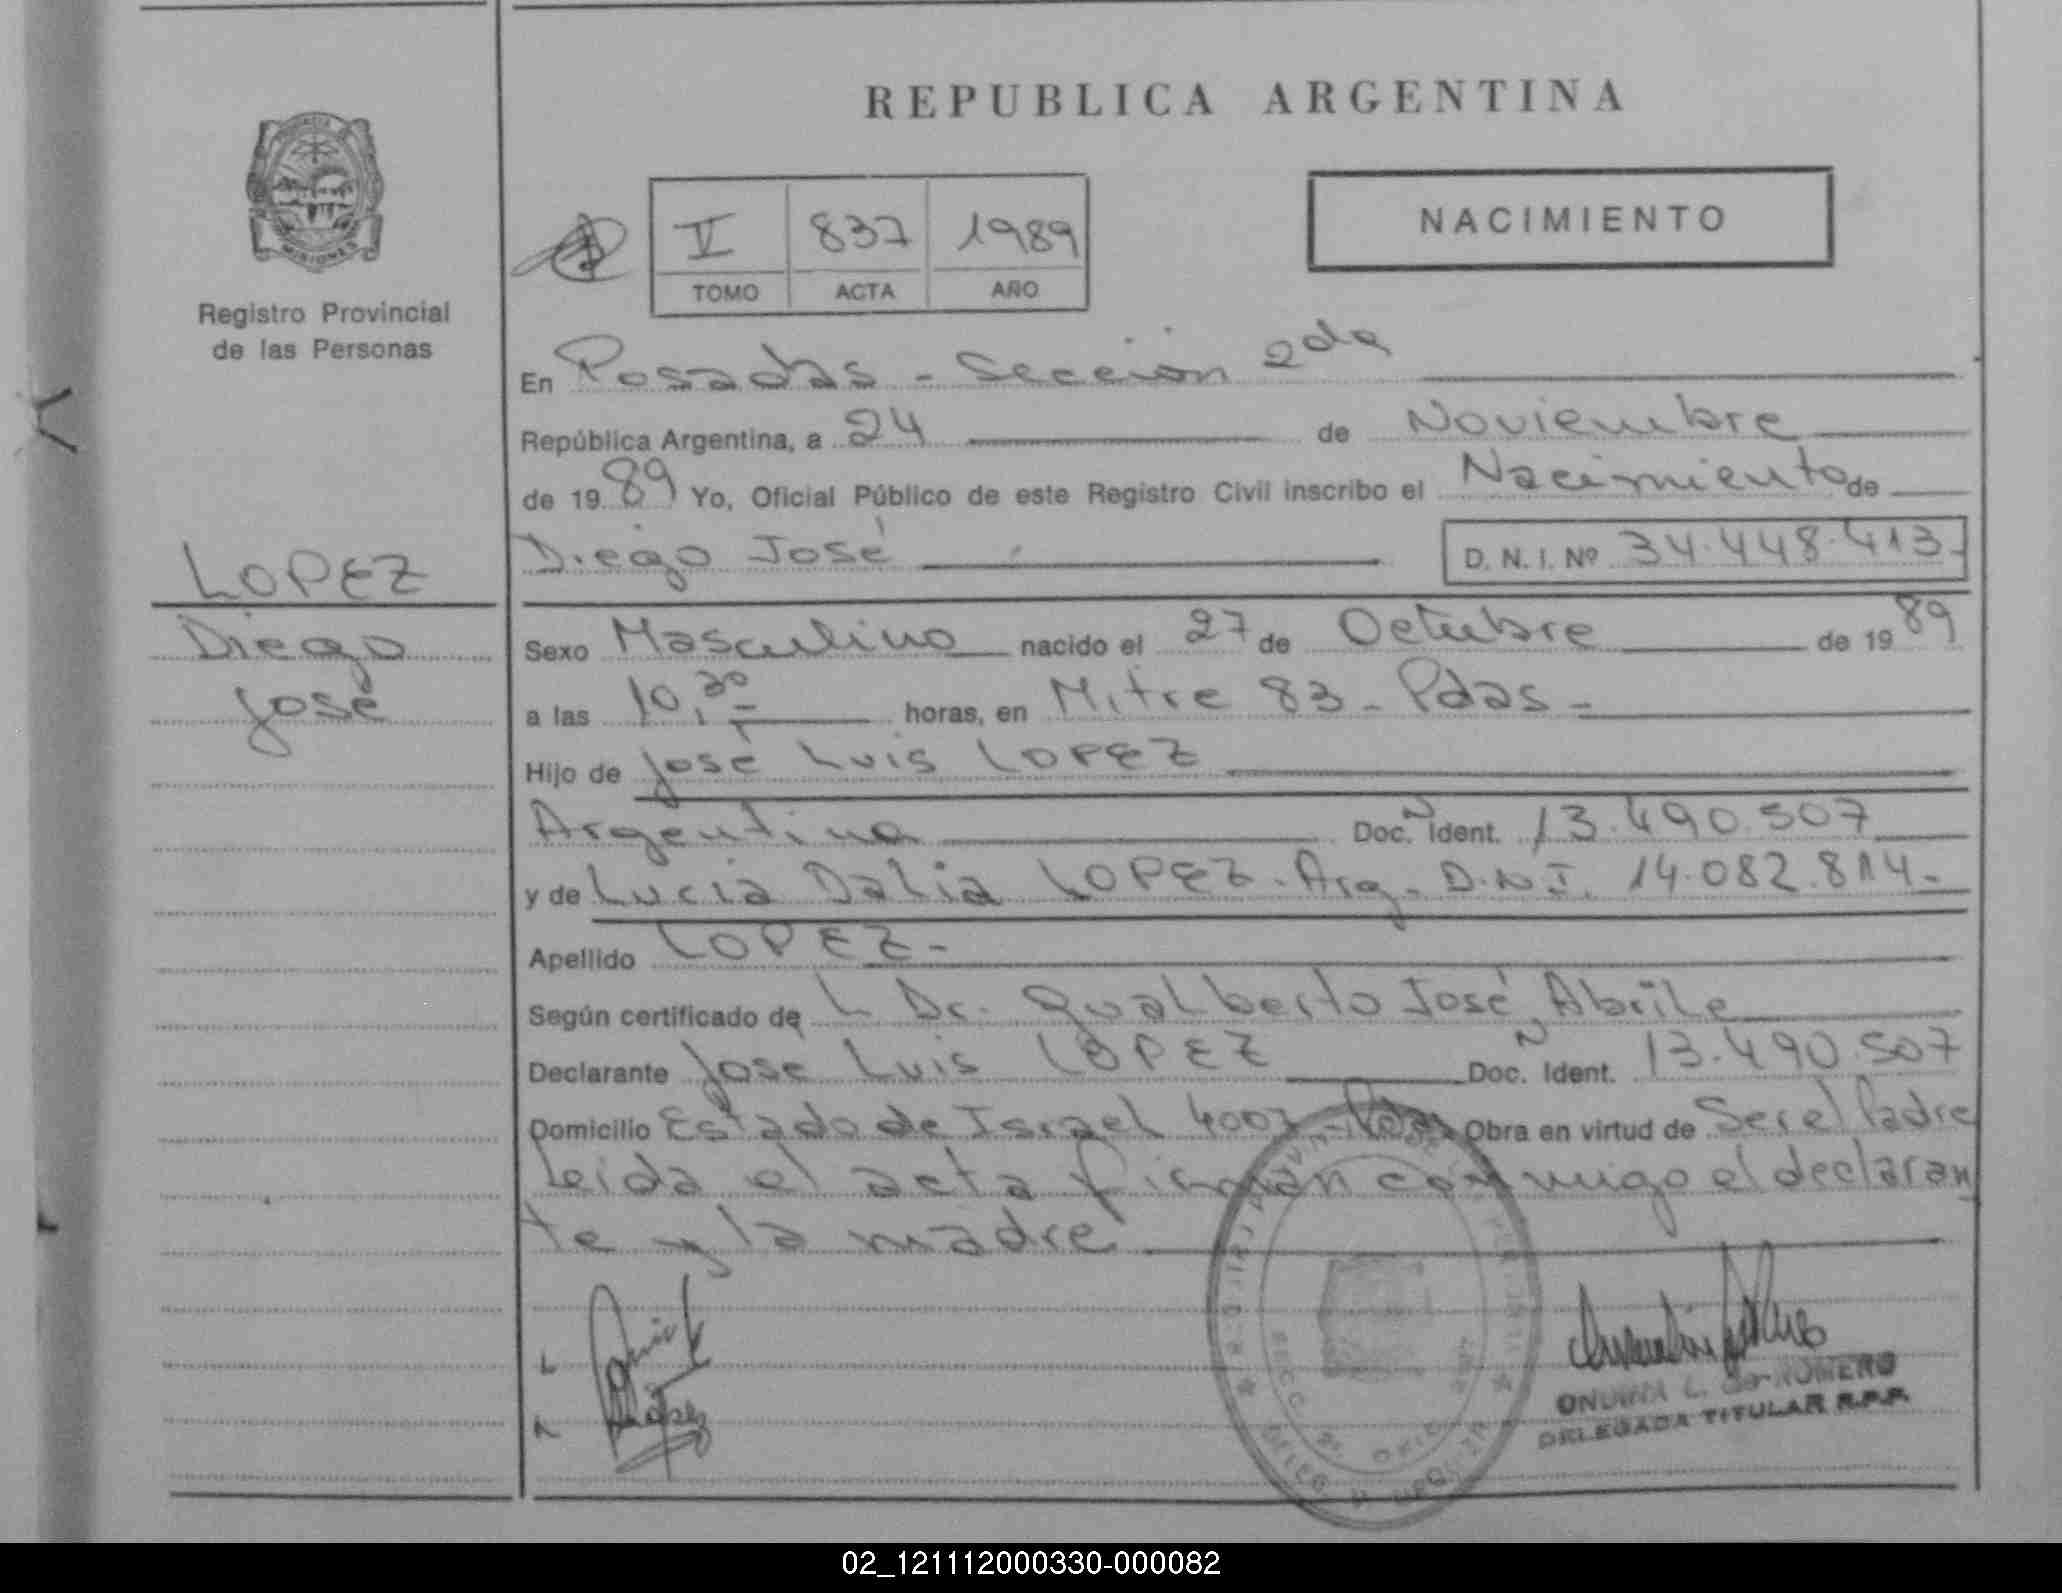 REPUBLICA ARGENTINA
PROVINCIA DE
MISIONES
Registro Provincial
de las Personas
V 837 1989
TOMO ACTA AÑO
NACIMIENTO
En Posadas - Sección 2da
República Argentina, a 24 de Noviembre
de 1989 Yo, Oficial Público de este Registro Civil inscribo el Nacimiento de
Diego José D. N. I. Nº 34.448.413-
LOPEZ
Diego
José
Sexo Masculino nacido el 27 de Octubre de 1989
a las 10,30 horas, en Mitre 83 - Pdas -
Hijo de José Luis LOPEZ
Argentina Doc. Ident. 13.490.507
y de Lucia Dalia LOPEZ. Arg. D.N.I. 14.082.814-
Apellido LOPEZ-
Según certificado de L Dr. Gualberto José Abrile
Declarante José Luis LOPEZ Doc. Ident. 13.490.507
Domicilio Estado de Israel 4007 - Pdas Obra en virtud de Ser el Padre
Leida el acta firman conmigo el declaran
te y la madre
López
L. de ROMERO
DELEGADA TITULAR R.P.P.
02_121112000330-000082